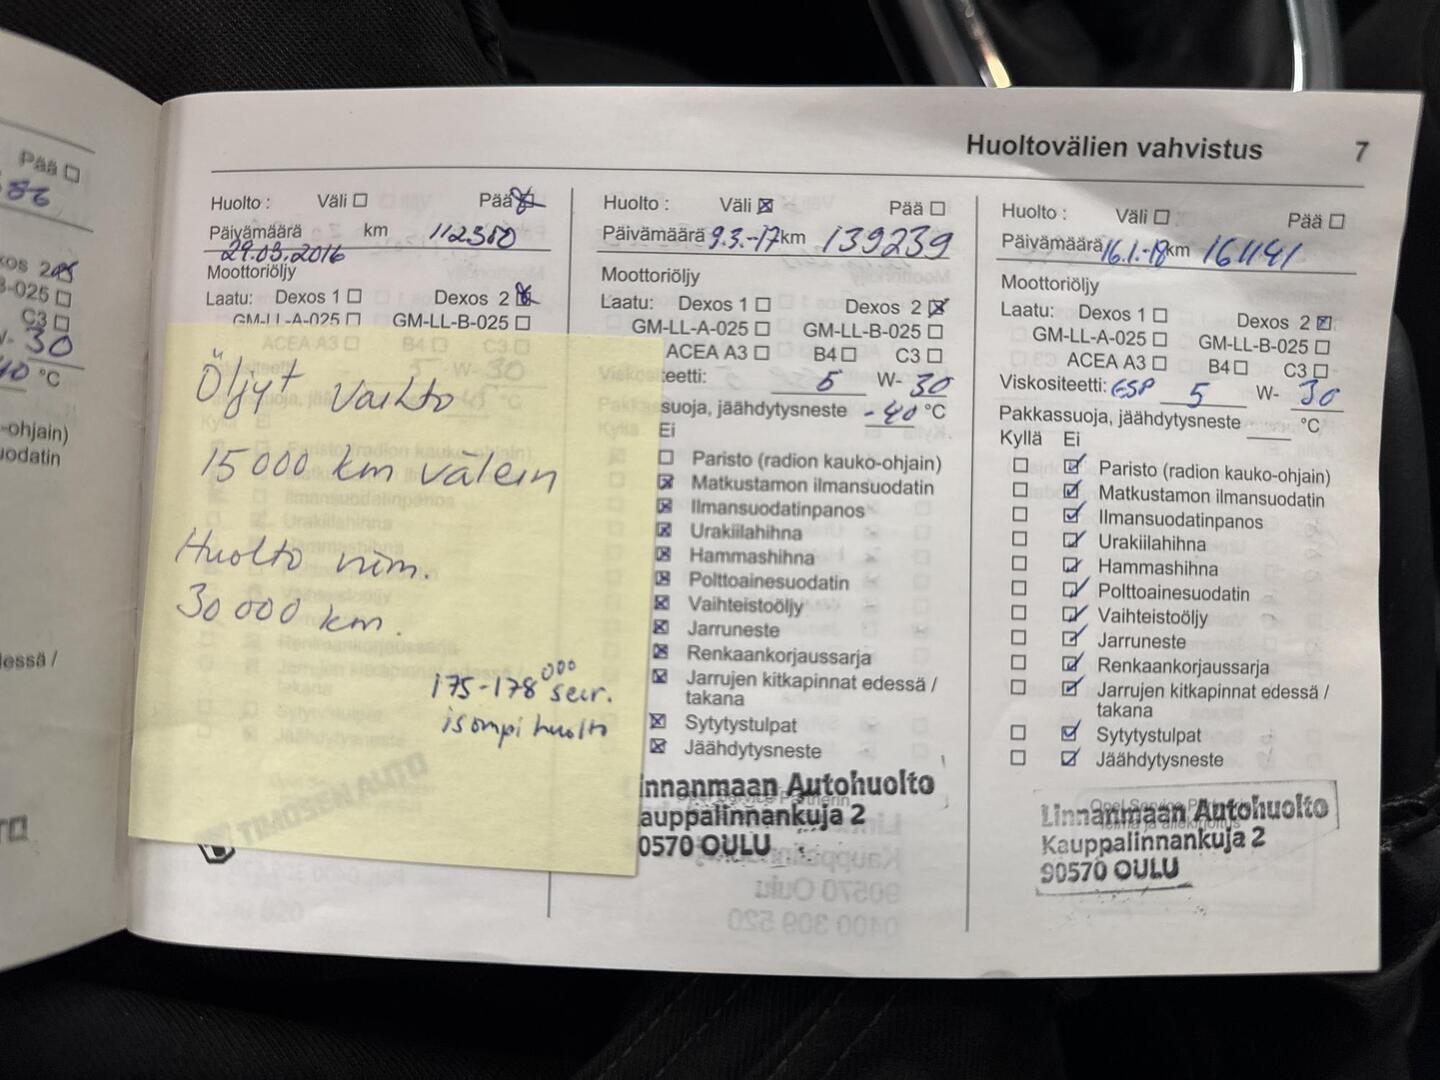 Huoltovälien vahvistus 7
Pää
86
-025
C3
30
°C
-ohjain)
odatin
dessä /
Huolto : Väli Pää
Päivämäärä km 112380
29.03.2016
Moottoriöljy
Laatu: Dexos 1 Dexos 2
GM-LL-A-025 GM-LL-B-025
ACEA A3 B4 C3
5 W- 30
Öljyt vaihto
15000 km välein
Huolto viim.
30 000 km.
175-178 000 seur.
isompi huolto
Huolto : Väli Pää
Päivämäärä 9.3.-17 km 139239
Moottoriöljy
Laatu: Dexos 1 Dexos 2
GM-LL-A-025 GM-LL-B-025
ACEA A3 B4 C3
teetti: 5 W- 30
suoja, jäähdytysneste -40 °C
Ei
Paristo (radion kauko-ohjain)
Matkustamon ilmansuodatin
Ilmansuodatinpanos
Urakiilahihna
Hammashihna
Polttoainesuodatin
Vaihteistoöljy
Jarruneste
Renkaankorjaussarja
Jarrujen kitkapinnat edessä /
takana
Sytytystulpat
Jäähdytysneste
innanmaan Autohuolto
auppalinnankuja 2
0570 OULU
Huolto : Väli Pää
Päivämäärä 16.1.-18 km 161141
Moottoriöljy
Laatu: Dexos 1 Dexos 2
GM-LL-A-025 GM-LL-B-025
ACEA A3 B4 C3
Viskositeetti: ESP 5 W- 30
Pakkassuoja, jäähdytysneste °C
Kyllä Ei
Paristo (radion kauko-ohjain)
Matkustamon ilmansuodatin
Ilmansuodatinpanos
Urakiilahihna
Hammashihna
Polttoainesuodatin
Vaihteistoöljy
Jarruneste
Renkaankorjaussarja
Jarrujen kitkapinnat edessä /
takana
Sytytystulpat
Jäähdytysneste
Linnanmaan Autohuolto
Kauppalinnankuja 2
90570 OULU